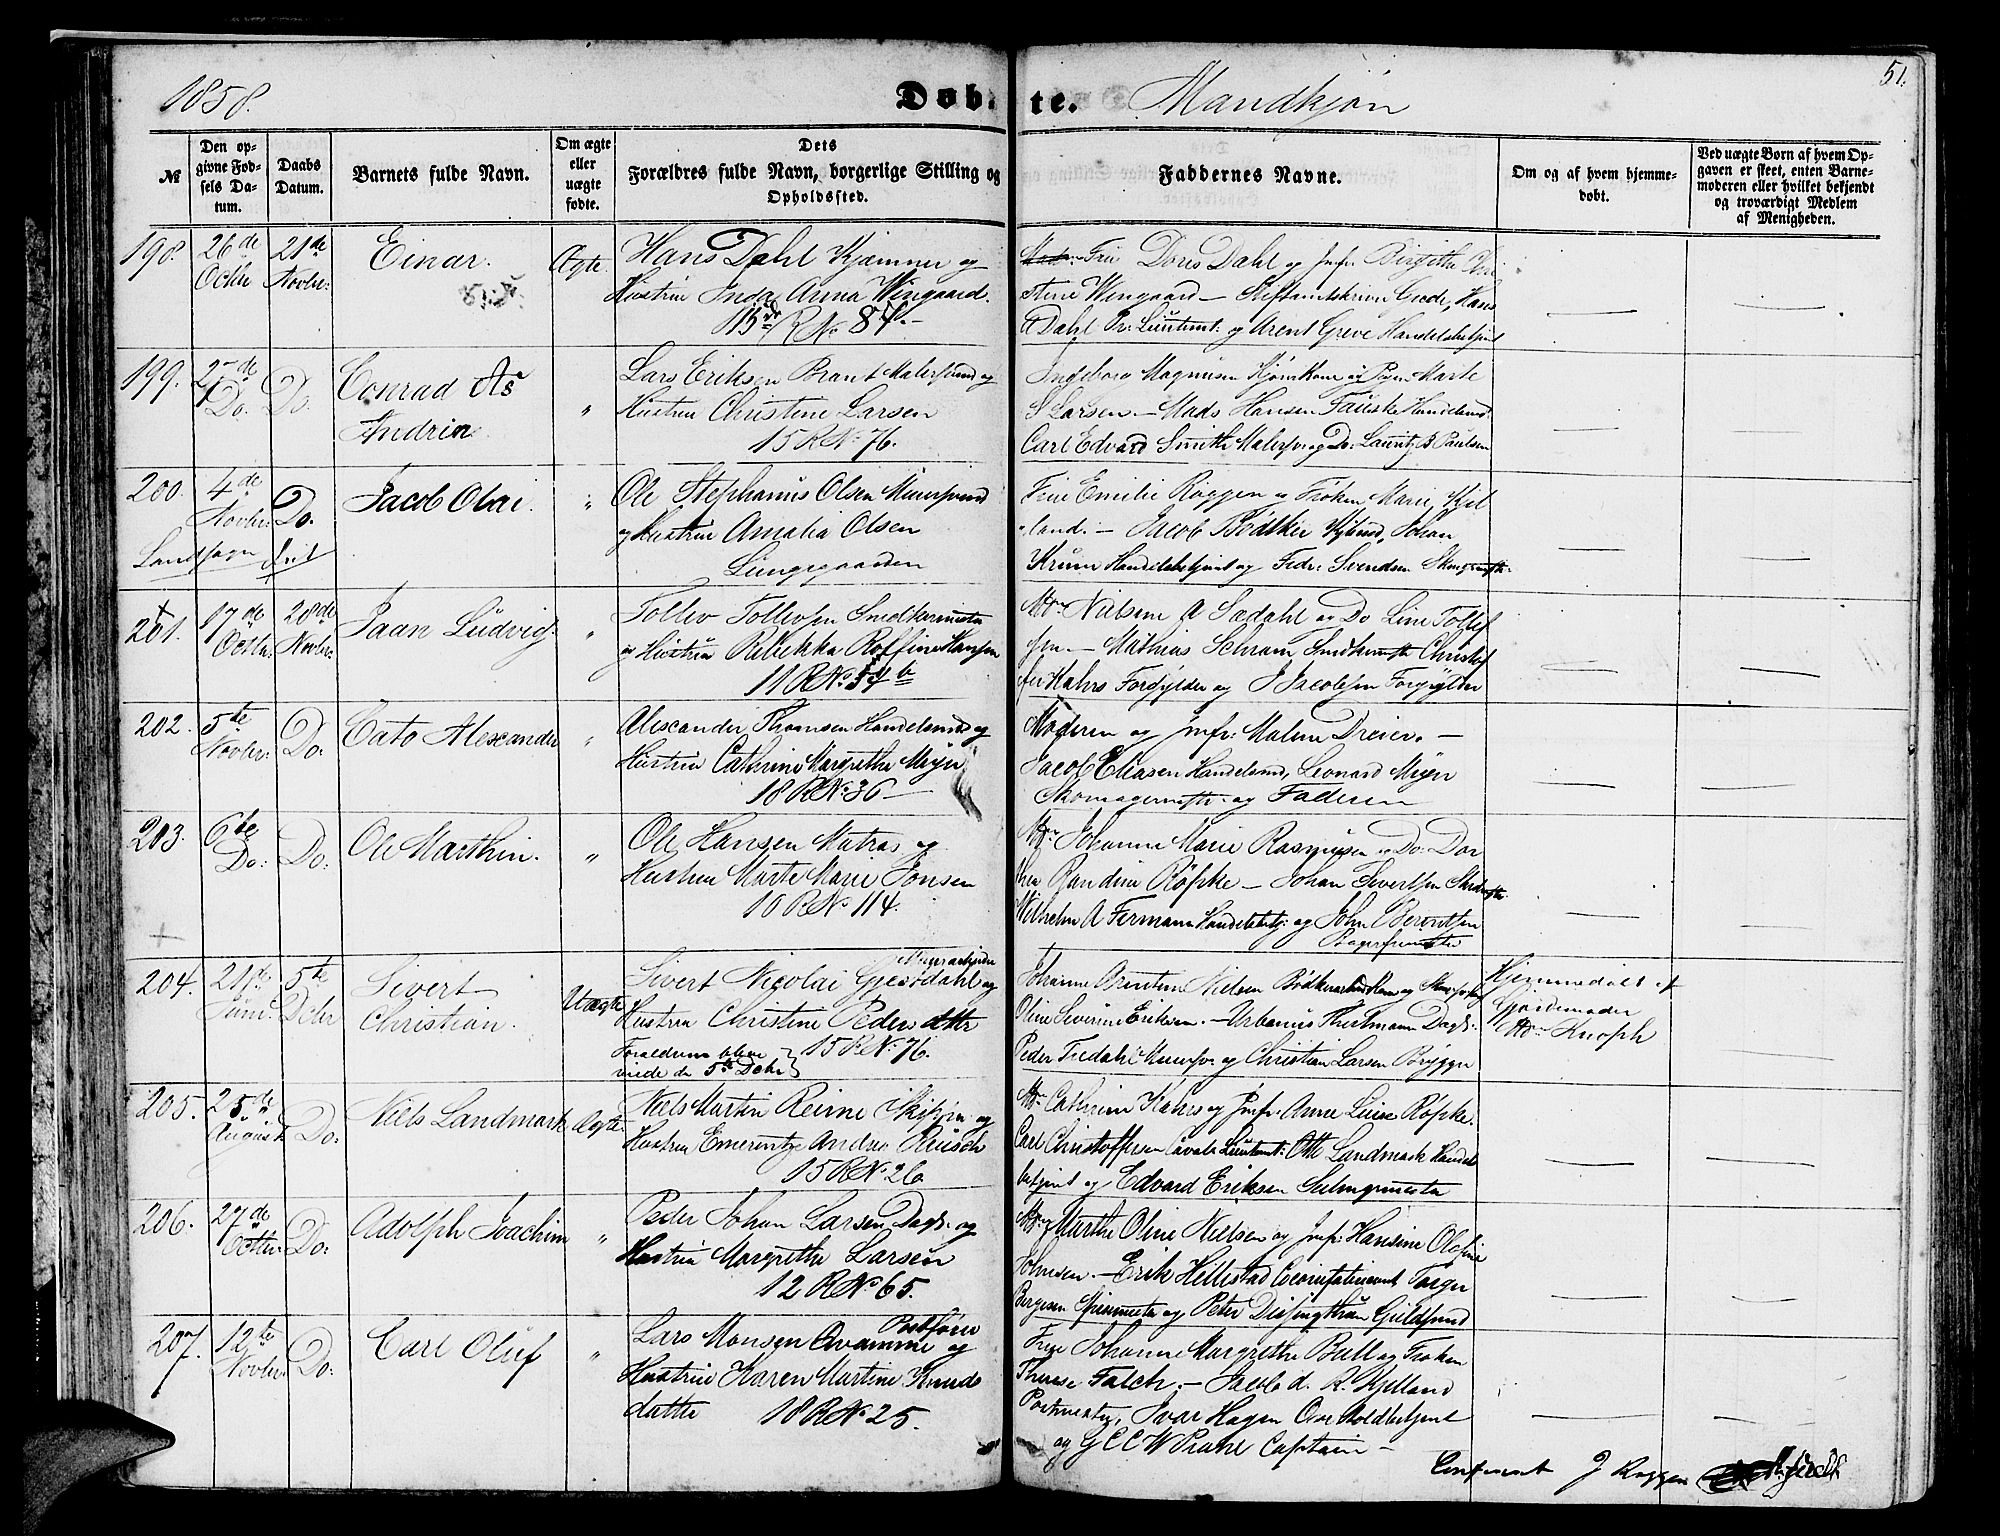 51.
1858.
Døbte. Mandkjøn
№
Den opgivne Fødsels Datum.
Daabs Datum.
Barnets fulde Navn.
Om ægte eller uægte fødte.
Dets Forældres fulde Navn, borgerlige Stilling og Opholdssted.
Faddernes Navne.
Om og af hvem hjemmedøbt.
Ved uægte Børn af hvem Opgaven er skeet, enten Barnemoderen eller hvilket bekjendt og troværdigt Medlem af Menigheden.
198. 26de Octbr 21de Novbr: Einar. Ægte.
Hans Dahl Kjæmner og
Hustrue Inda Anna Wingaard.
15de R No 84.
Frue Doris Dahl og Jmfr. Birgithe Chri
stine Wengaard — Stiftamtskriver Giede, Hans
Dahl Pr: Lieutnt: og Arent Greve Handelsbetjent
199. 27de Do. Do. Conrad As
Andrin. "
Lars Eriksen Brant Malersvend og
Hustrue Christine Larsen
15 R No 76.
Ingeborg Magnusen Kjøn Kone og Pigen Marte
S Larsen. — Mads Hansen Fauske Handelsmd.
Carl Edvard Smith Malersv og Do. Lauritz B Paulsen
200. 4de Novbr. Do. Jacob Olai. "
Landsogn frit
Ole Stephanus Olsen Muursvend
og Hustrue Amalia Olsen
Lungegaarden
Frue Emilie Røggen og Frøken Marie Kjel
land. — Jacob Bødtker Kjbmd, Johan
Krum Handelsbetjent og Fedr. Svendsen
201. 17de Octbr. 28de Novbr: Jaan Ludvig. "
Tollev Tollevsen Smedkermester
og Hustrue Rebekka Roffine Hansen
11 R No. 54 b
Md. Nielsine A Sædahl og Do Line Tollef
sen. — Mathias Schram Smedkermstr Christof
fer Kahrs Forgylder og J Jacobsen Forgylder
202. 5te Novbr: Do: Cato Alexander "
Alexander Thomsen Handelsmd og
Hustrue Cathrine Margrethe Meyer
18 R No: 36 —
Moderen og Jmfr: Malene Dreier. —
Jacob Eliasen Handelsmd, Leonard Meyer
Skomagermestr: og Faderen
203. 6te Do: Do: Ole Marthin. "
Ole Hansen Matros og
Hustrue Marte Marie Jonsen
10 R No 114.
Md. Johanne Marie Rasmusen og Do: Dor
thea Randine Røpke — Johan Sivertsen
Wilhelm A Fermann Handelsbtj: og John Berentsen
Bagersvend
204. 21de Juni. 5te Decbr Sivert
Christian. Uægte
Muurarbeider
Sivert Nicolai Gjesdahl og
Hustrue Christine Pedersdatter
Forældrene bleve
viede d. 5te Debr } 15 R No 76.
Johanne Berntine Nielsen Bødker
Oline Severine Eriksen. — Urbanus Hertmann Dagk.
Peder Tredahl Muursv og Christian Larsen Brygger
Hjemmedøbt af
Gjordemoder
Md. Knoph
205. 25de August Do: Niels Landmark Ægte.
Niels Martin Reime Skipper og
Hustrue Emerentze Andrea Reusch
15 R No 26.
Md. Cathrine Kahrs og Jmfr. Anne Luise Røpke.
Carl Christoffersen Caval: Lieutent: Otto Landmark Handels
betjent og Edvard Eriksen
206. 27de Octbr. Do: Adolph Joachim "
Peder Johan Larsen Dagk. og
Hustrue Margrethe Larsen
12 R No. 65.
Md. Marthe Oline Nielsen og Jmfr: Hansine Olefine
Johnsen. — Erik Hillestad Torger
Bergesen og Peter Guldsmd
207. 12te Novbr: Do: Carl Oluf "
Postfører
Lars Monsen Qvamme og
Hustrue Karen Martine Knuds
datter 18 R No 25.
Frue Johanne Margrethe Bull og Frøken
Therese Falch. — Jacob d. R. Kjelland
Postmester, Ivar Hagen Overtoldbetjent
og G C C W Prahl Captain —
Confereret J Røggen